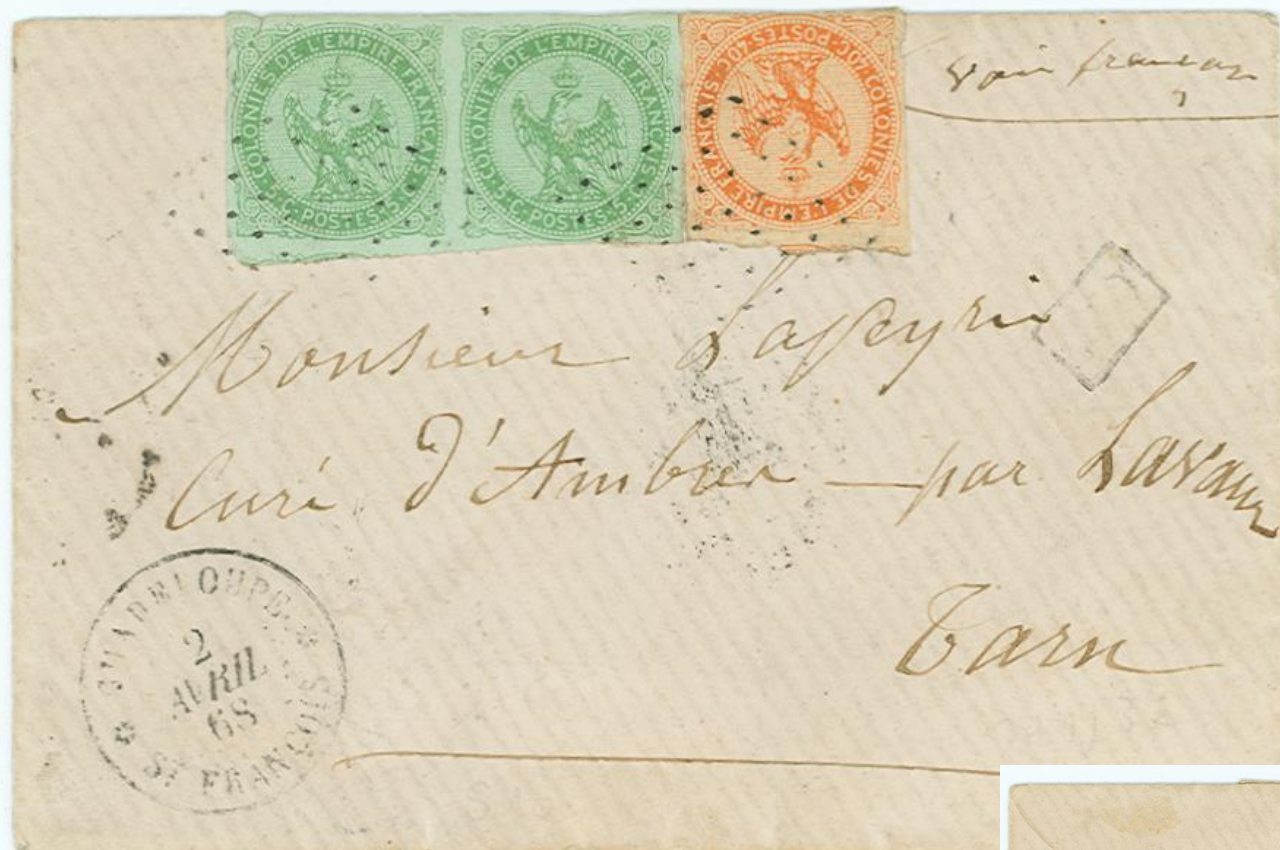 COLONIES DE L'EMPIRE FRANÇAIS · 5 · C · POSTES · 5 · C ·
COLONIES DE L'EMPIRE FRANÇAIS · 5 · C · POSTES · 5 · C ·
COLONIES DE L'EMPIRE FRANÇAIS · 40C · POSTES · 40C ·
voie française
Monsieur Lapeyrie
Curé d'Ambres — par Lavaur
Tarn
GUADELOUPE
2
AVRIL
68
ST FRANÇOIS